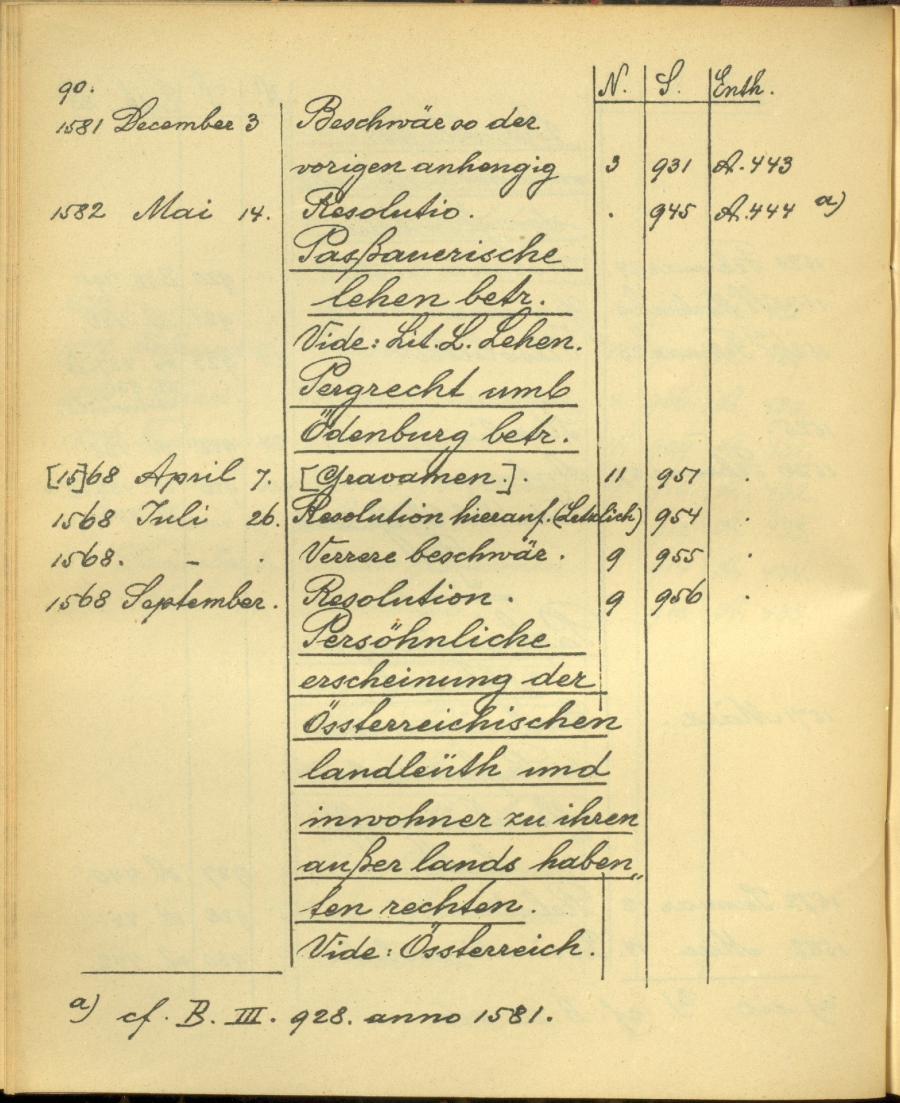 90. N. S. Enth.
1581 December 3 Beschwär so der
vorigen anhengig 3 931 A. 443
1582 Mai 14. Resolutio. . 945 A. 444 a)
Pasßauerische
lehen betr.
Vide: Lit. L. Lehen.
Pergrecht umb
Ödenburg betr.
[15]68 April 7. [Gravamen.]. 11 951 .
1568 Juli 26. Resolution hierauf. (Letzlich) 954 .
1568. – . Verrere beschwär. 9 955 .
1568 September. Resolution. 9 956 .
Persöhnliche
erscheinung der
Össterreichischen
landleüth und
inwohner zu ihren
außer lands haben„
ten rechten.
Vide: Össterreich.
a) cf. B. III. 928. anno 1581.